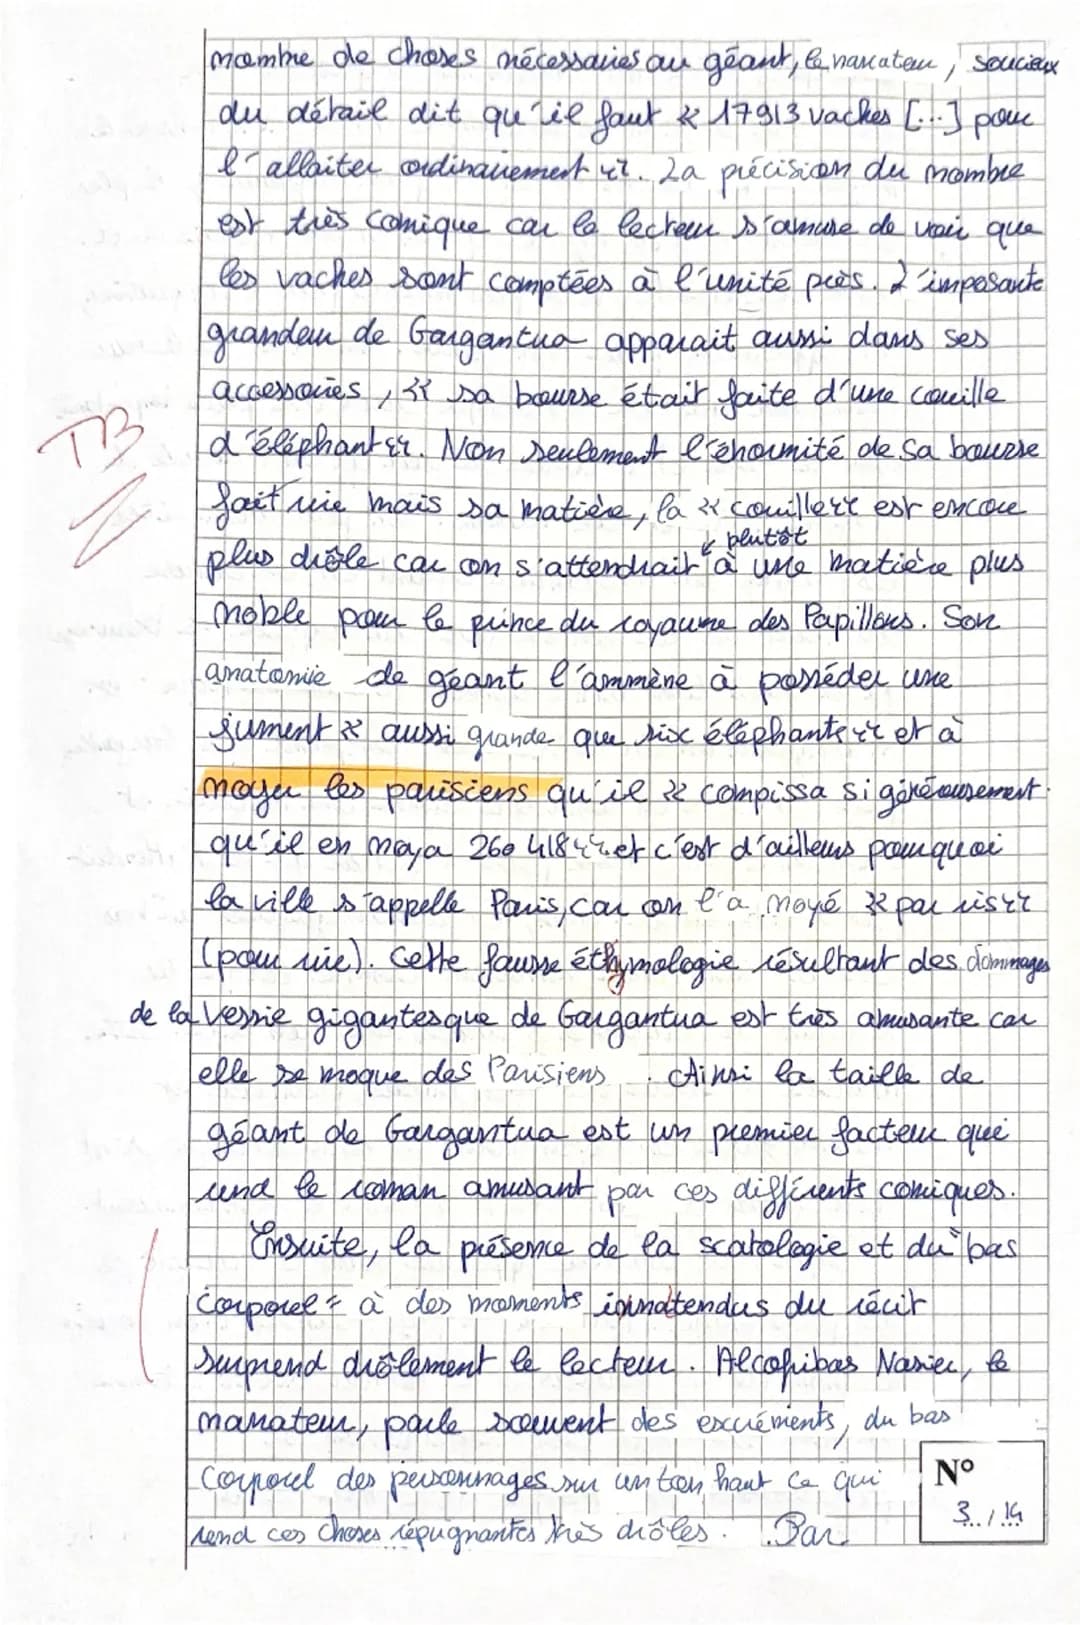 nombre de choses nécessaires au géant, le narrateur, soucieux
du détail dit qu'il faut « 17913 vaches [...] pour
l'allaiter ordinairement ». La précision du nombre
est très comique car le lecteur s'amuse de voir que
les vaches sont comptées à l'unité près. L'imposante
grandeur de Gargantua apparait aussi dans ses
accessoires, « sa bourse était faite d'une couille
d'éléphant ». Non seulement l'énormité de sa bourse
TB
fait rire mais sa matière, la « couille » est encore
plutôt
plus drôle car on s'attendrait à une matière plus
noble pour le prince du royaume des Papillons. Son
anatomie de géant l'ammène à posséder une
jument « aussi grande que six éléphants » et à
noyer les parisiens qu'il « compissa si généreusement
qu'il en noya 260 418 » et c'est d'ailleurs pourquoi
la ville s'appelle Paris, car on l'a noyé « par ris »
(pour rire). Cette fausse éthymologie résultant des dommages
de la vessie gigantesque de Gargantua est très amusante car
elle se moque des Parisiens. Ainsi la taille de
géant de Gargantua est un premier facteur qui
rend le roman amusant par ces différents comiques.
Ensuite, la présence de la scatologie et du "bas
corporel" à des moments innatendus du récit
surprend drôlement le lecteur. Alcofribas Nasier, le
narrateur, parle souvent des excréments, du bas
corporel des personnages sur un ton haut ce qui
rend ces choses répugnantes très drôles. Par
N°
3../.14